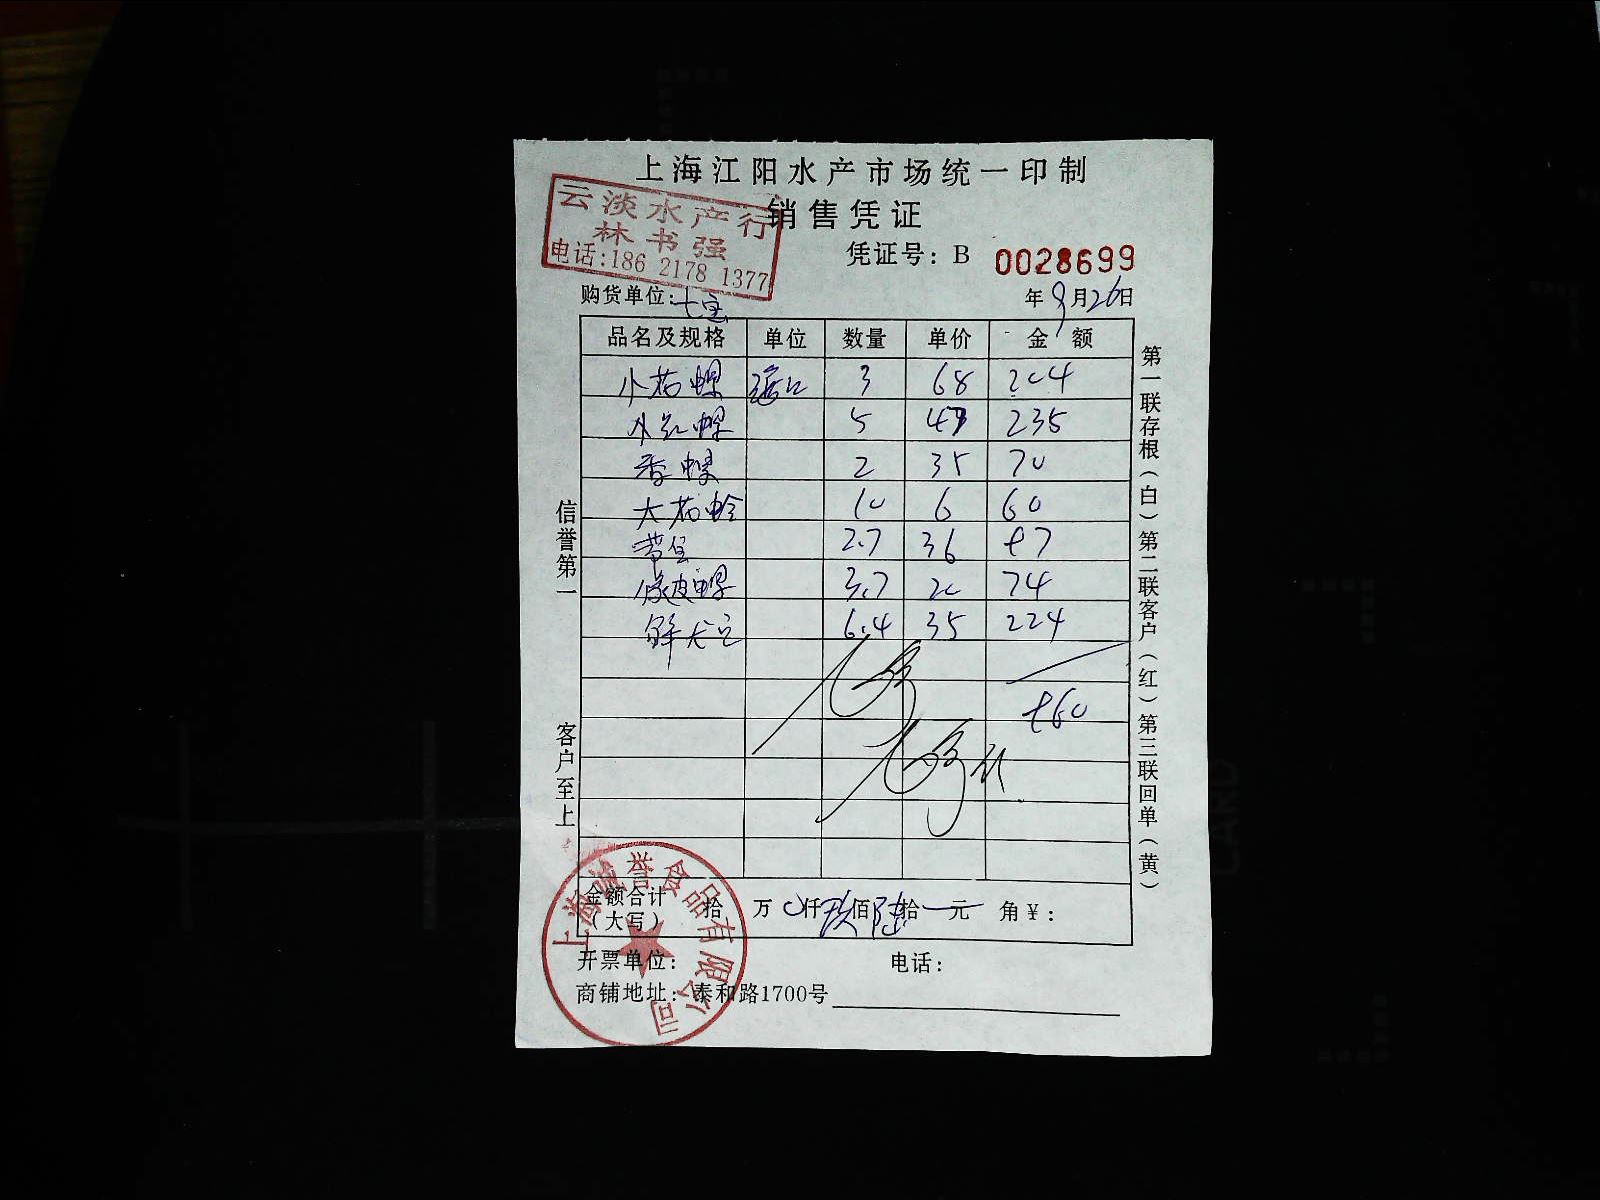 上海江阳水产市场统一印制
销售凭证
云淡水产行
林书强
电话:186 2178 1377
凭证号: B 0028699
购货单位: 七宝
年 9月26日
品名及规格 单位 数量 单价 金额
小花螺 3 68 204
小红螺 5 47 235
香螺 2 35 70
大花蛤 10 6 60
带鱼 2.7 36 97
橡皮螺 3.7 20 74
6.4 35 224
960
金额合计（大写） 拾 万 0仟 玖佰 陆拾 一元 角 ¥:
开票单位: 电话:
商铺地址: 泰和路1700号
信誉第一 客户至上
第一联存根（白）第二联客户（红）第三联回单（黄）
上海诚誉食品有限公司